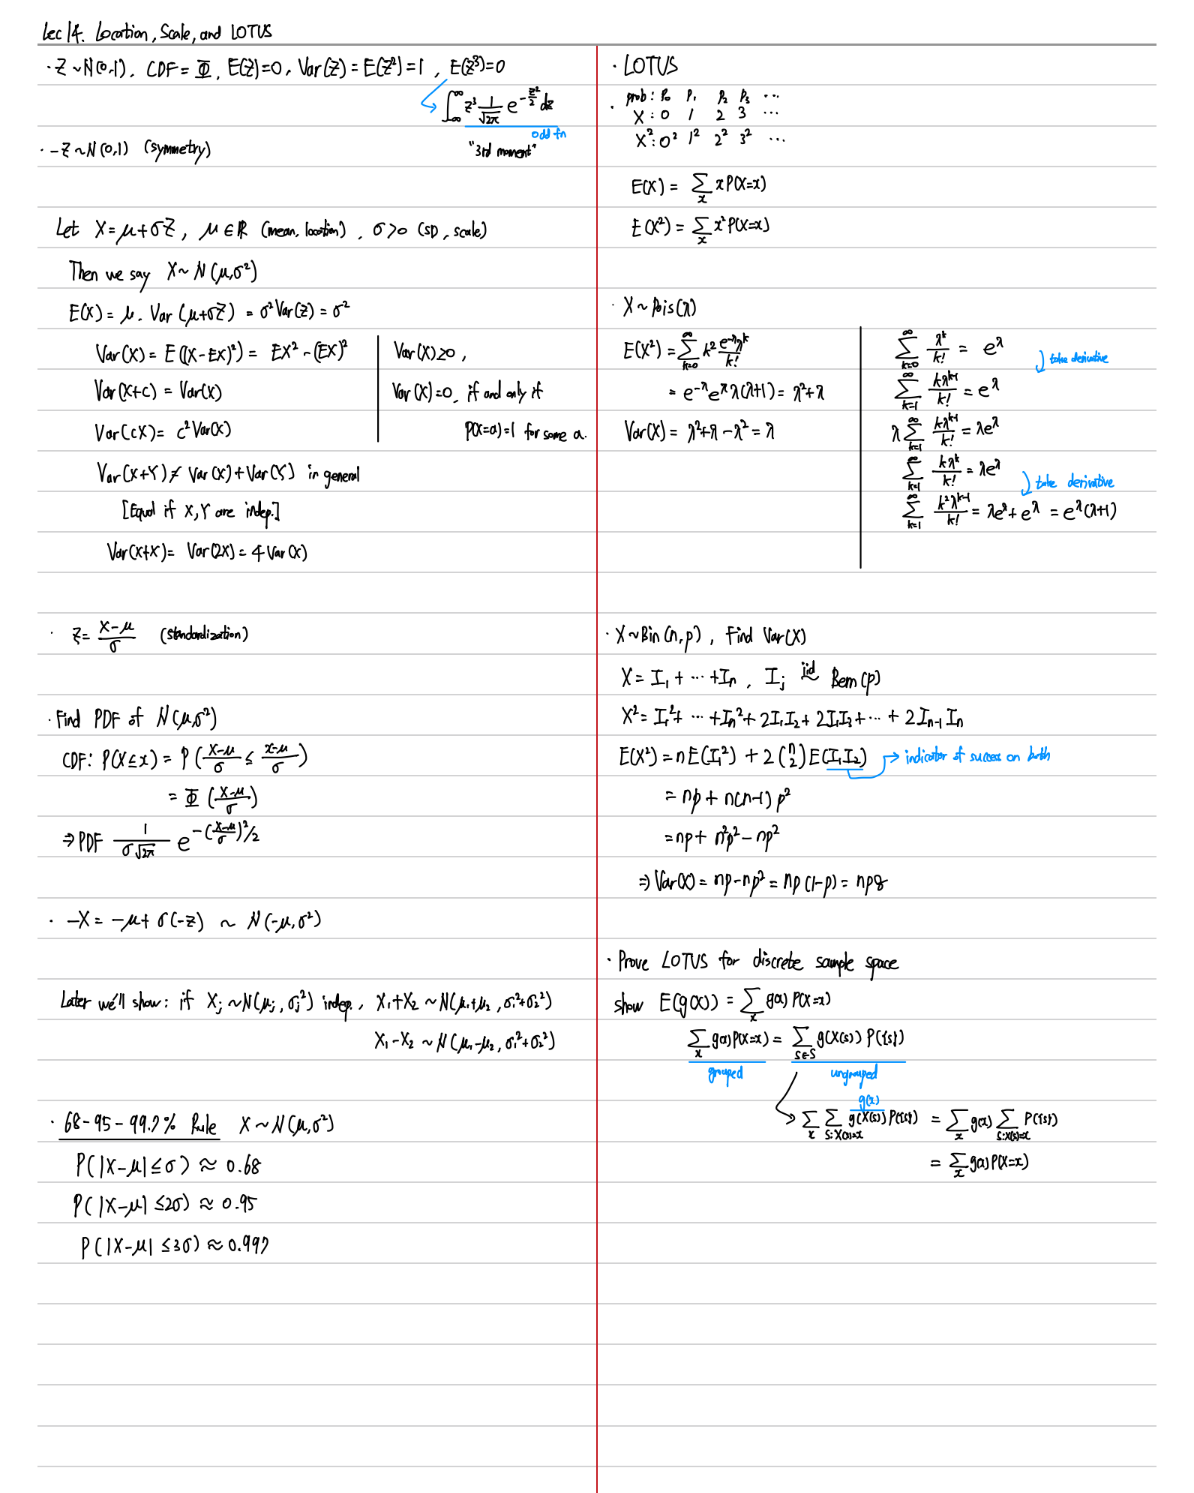 Lec 14. Location, Scale, and LOTUS
· Z ~ N(0,1), CDF = Φ, E(Z)=0, Var(Z) = E(Z²)=1, E(Z³)=0
∫_{-∞}^{∞} z³ 1/√2π e^{-z²/2} dz
odd fn
"3rd moment"
· -Z ~ N(0,1) (symmetry)
Let X = μ+σZ, μ∈ℝ (mean, location), σ>0 (SD, scale)
Then we say X ~ N(μ,σ²)
E(X) = μ. Var(μ+σZ) = σ²Var(Z) = σ²
Var(X) = E((X-EX)²) = EX² - (EX)²
Var(X+c) = Var(X)
Var(cX) = c²Var(X)
Var(X)≥0,
Var(X)=0, if and only if
P(X=a)=1 for some a.
Var(X+Y) ≠ Var(X)+Var(Y) in general
[Equal if X,Y are indep.]
Var(X+X) = Var(2X) = 4Var(X)
· Z = (X-μ)/σ (Standardization)
· Find PDF of N(μ,σ²)
CDF: P(X≤x) = P((X-μ)/σ ≤ (x-μ)/σ)
= Φ((x-μ)/σ)
⇒ PDF 1/(σ√2π) e^{-((x-μ)/σ)²/2}
· -X = -μ + σ(-Z) ~ N(-μ,σ²)
Later we'll show: if X_j ~ N(μ_j, σ_j²) indep, X₁+X₂ ~ N(μ₁+μ₂, σ₁²+σ₂²)
X₁-X₂ ~ N(μ₁-μ₂, σ₁²+σ₂²)
· 68-95-99.7% Rule X ~ N(μ,σ²)
P(|X-μ| ≤ σ) ≈ 0.68
P(|X-μ| ≤ 2σ) ≈ 0.95
P(|X-μ| ≤ 3σ) ≈ 0.997
· LOTUS
· prob: P₀ P₁ P₂ P₃ ...
X: 0 1 2 3 ...
X²: 0² 1² 2² 3² ...
E(X) = Σ_x x P(X=x)
E(X²) = Σ_x x² P(X=x)
· X ~ Pois(λ)
E(X²) = Σ_{k=0}^{∞} k² e^{-λ}λ^k/k!
= e^{-λ}e^{λ}λ(λ+1) = λ²+λ
Var(X) = λ²+λ-λ² = λ
Σ_{k=0}^{∞} λ^k/k! = e^λ
take derivative
Σ_{k=1}^{∞} kλ^{k-1}/k! = e^λ
λ Σ_{k=1}^{∞} kλ^{k-1}/k! = λe^λ
Σ_{k=1}^{∞} kλ^k/k! = λe^λ
take derivative
Σ_{k=1}^{∞} k²λ^{k-1}/k! = λe^λ + e^λ = e^λ(λ+1)
· X ~ Bin(n,p), Find Var(X)
X = I₁ + ... + I_n, I_j iid ~ Bern(p)
X² = I₁² + ... + I_n² + 2I₁I₂ + 2I₁I₃ + ... + 2I_{n-1}I_n
E(X²) = nE(I₁²) + 2(n 2)E(I₁I₂) → indicator of success on both
= np + n(n-1)p²
= np + n²p² - np²
⇒ Var(X) = np - np² = np(1-p) = npq
· Prove LOTUS for discrete sample space
show E(g(X)) = Σ_x g(x) P(X=x)
Σ_x g(x)P(X=x) = Σ_{s∈S} g(X(s)) P({s})
grouped ungrouped
g(x)
Σ_x Σ_{s:X(s)=x} g(X(s)) P({s}) = Σ_x g(x) Σ_{s:X(s)=x} P({s})
= Σ_x g(x)P(X=x)